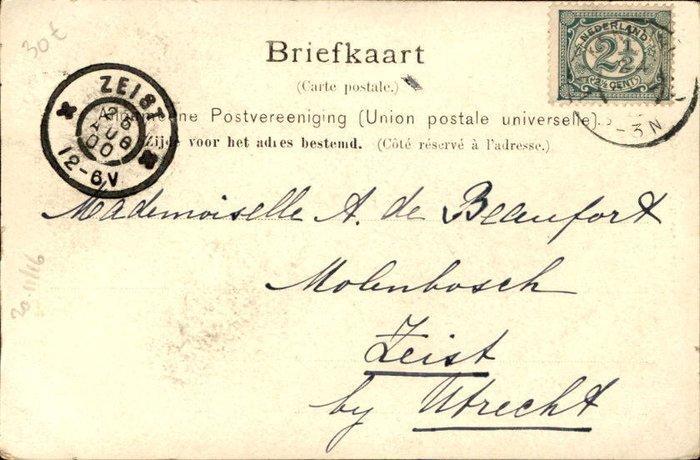 30 ct
Briefkaart
(Carte postale.)
Algemeene Postvereeniging (Union postale universelle).
Zijde voor het adres bestemd. (Côté réservé à l'adresse.)
NEDERLAND
2½
(2½ CENT)
-3N
ZEIST
26
AUG
00
12-6V
Mademoiselle A. de Beaufort
Molenbosch
Zeist
by Utrecht
20.11/16